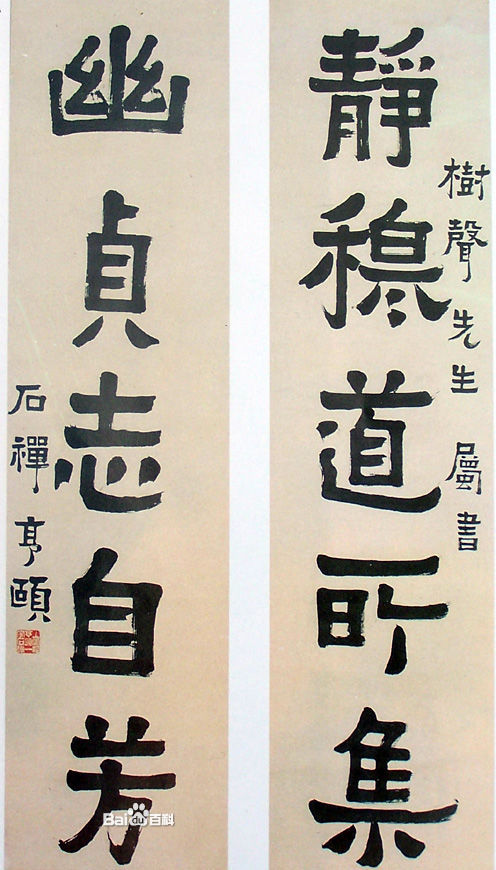 樹聲先生 屬書
靜穆道所集
幽貞志自芳
石禪亨頤
Bai du 百科